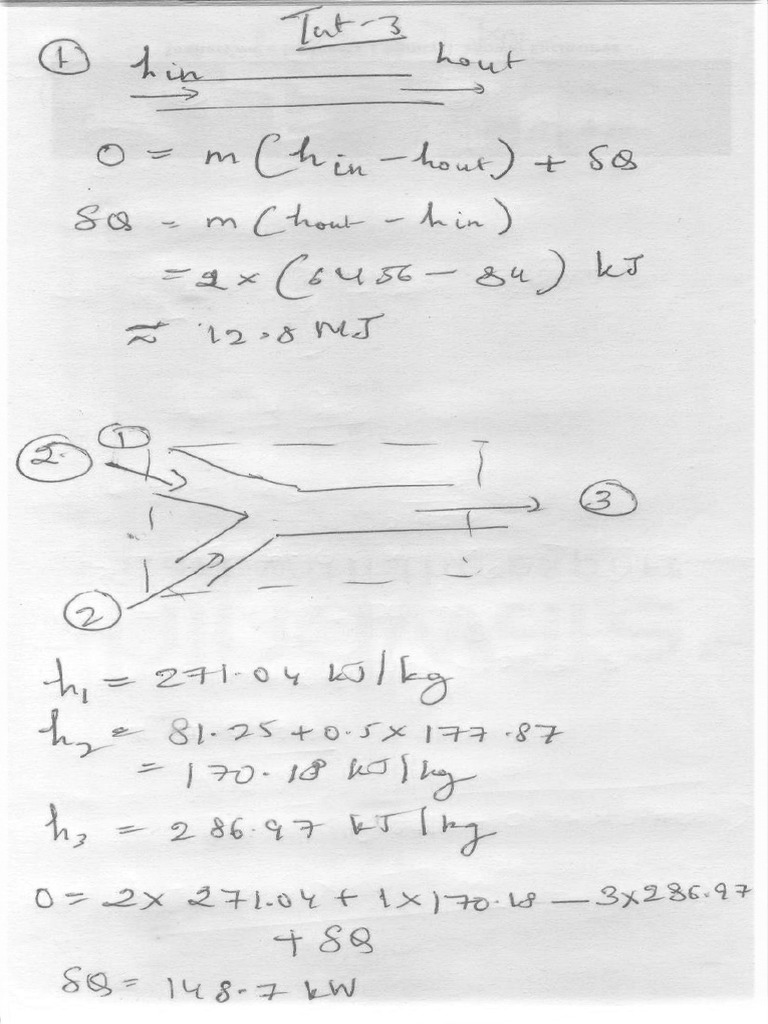 Tut-3
① hin hout
0 = m (hin - hout) + δQ
δQ = m (hout - hin)
= 2 × (6456 - 84) kJ
≈ 12.8 MJ
② ①
③
②
h₁ = 271.04 kJ/kg
h₂ = 81.25 + 0.5 × 177.87
= 170.18 kJ/kg
h₃ = 286.97 kJ/kg
0 = 2 × 271.04 + 1 × 170.18 - 3 × 286.97
+ δQ
δQ = 148.7 kW